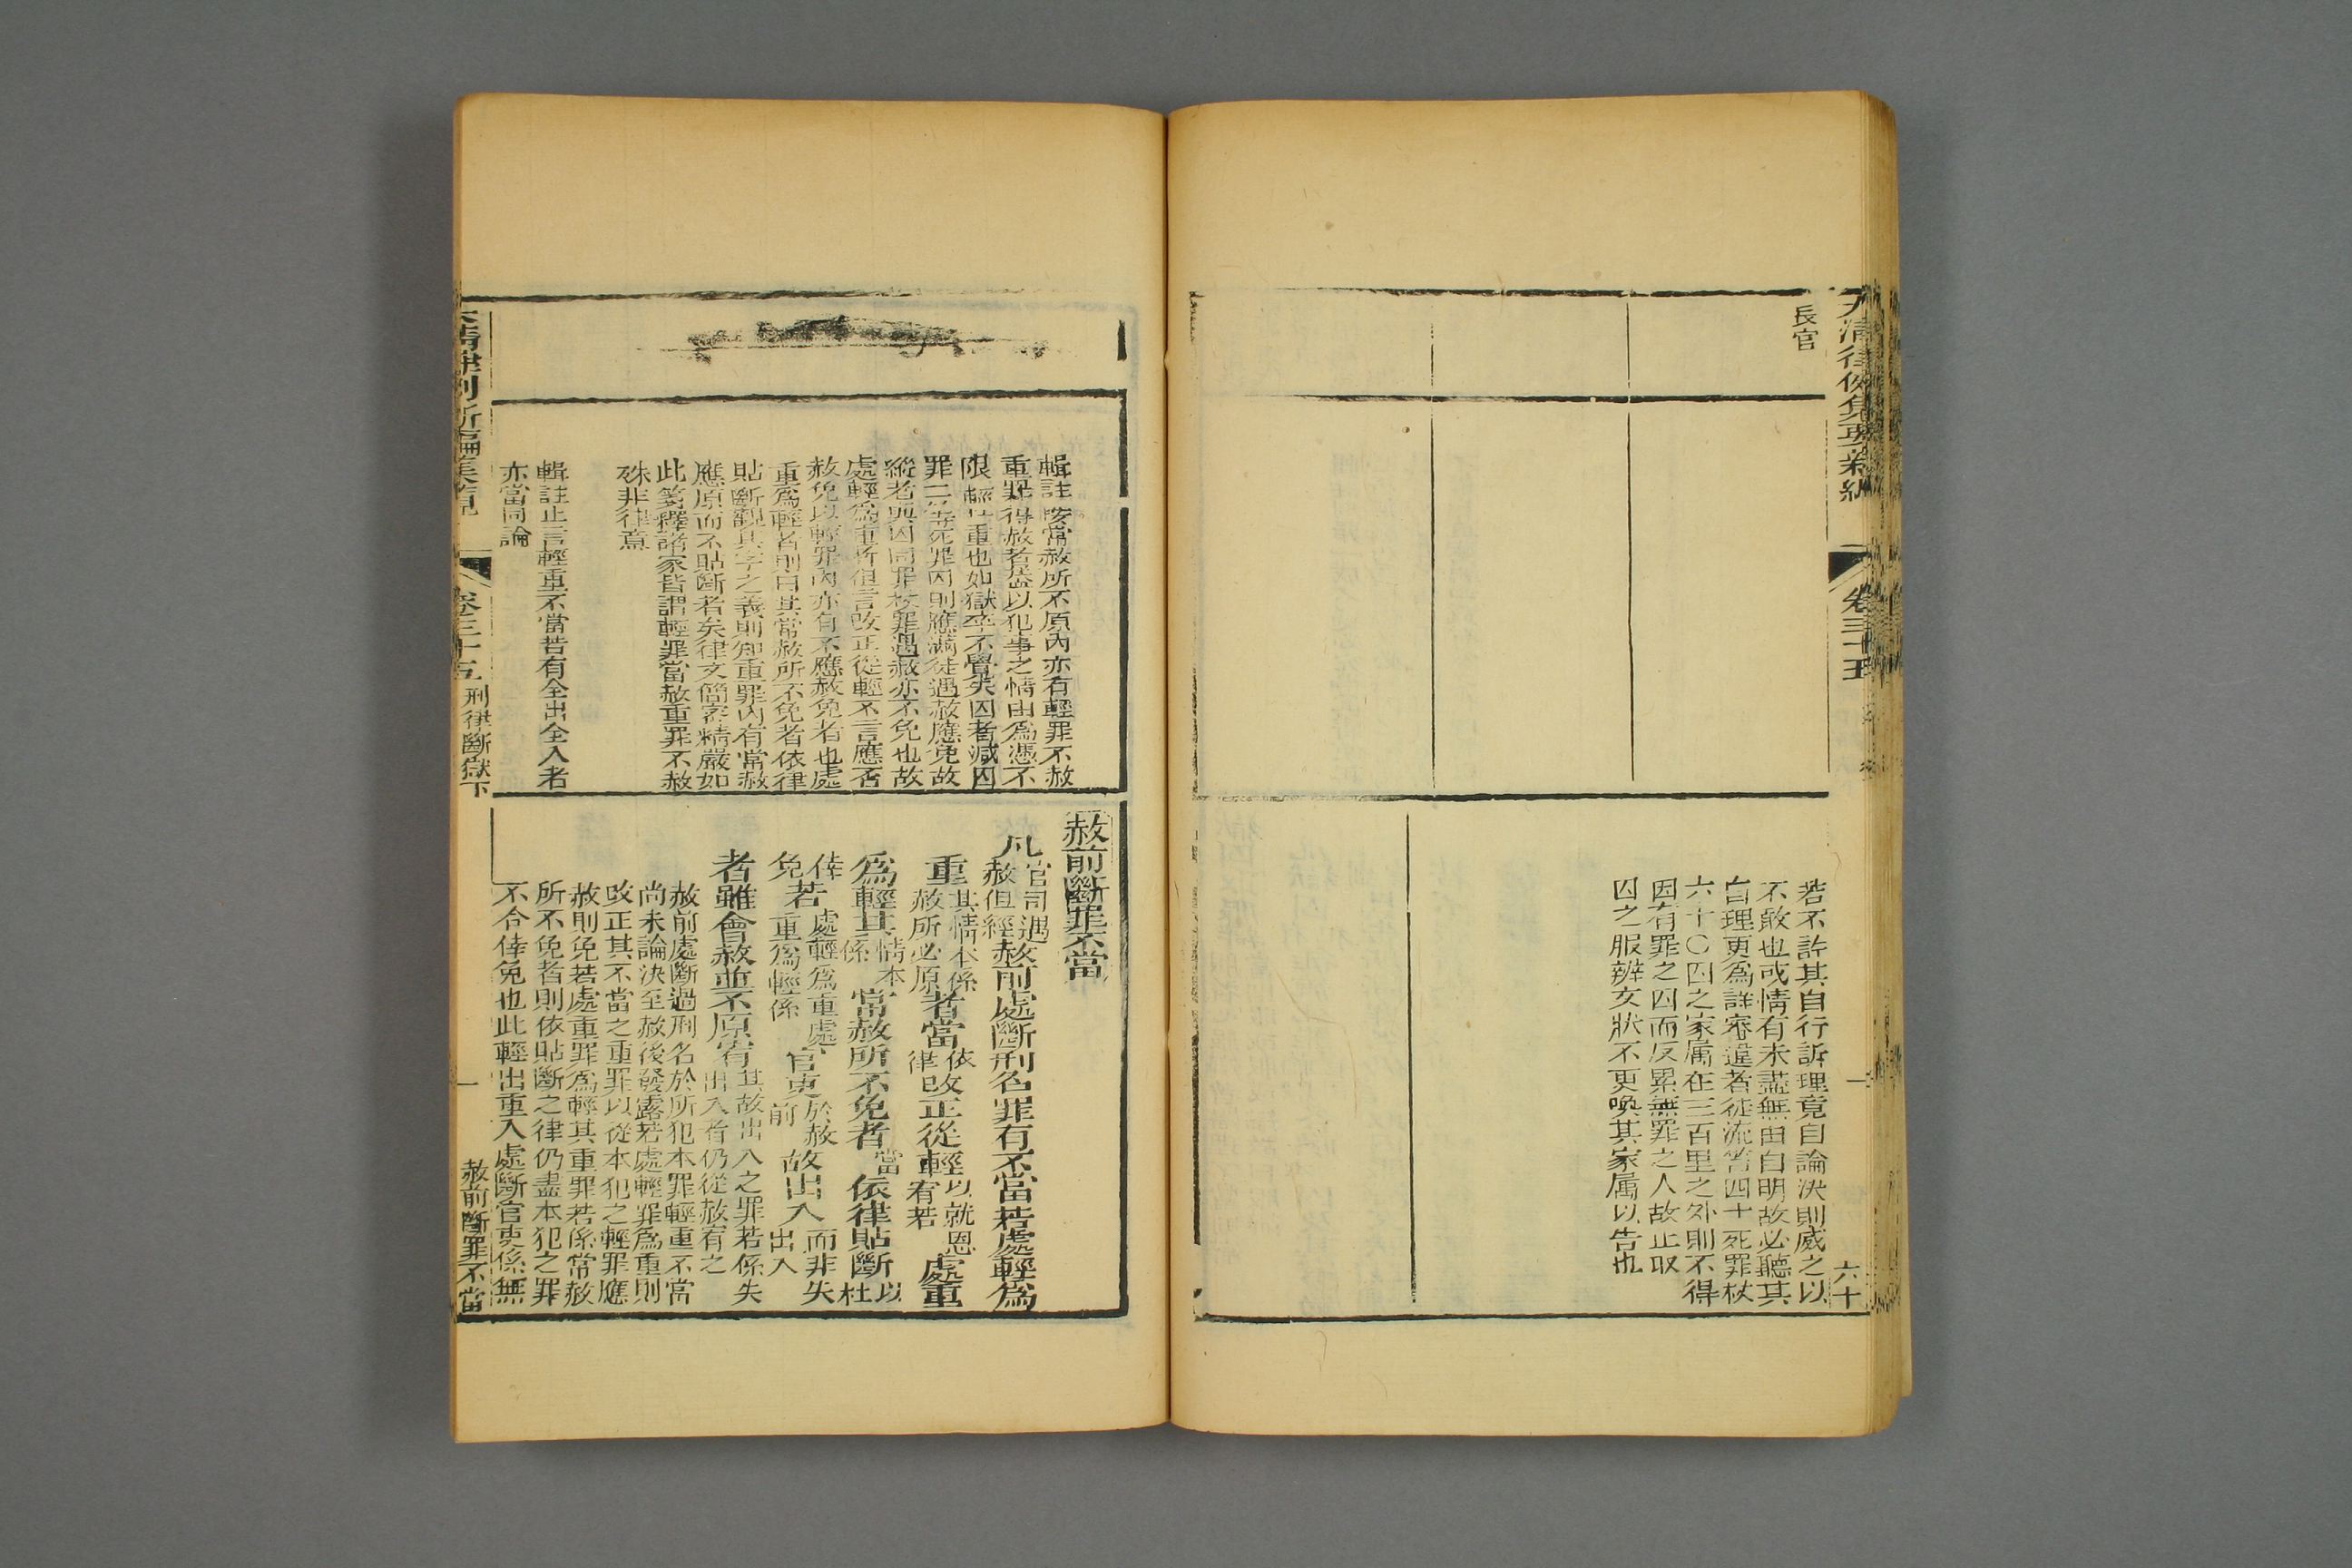 大清律例集要新編
卷三十五
六十
長官
若不許其自行訴理竟自論決則威之以
不敢也或情有未盡無由自明故必聽其
自理更為詳審違者徒流笞四十死罪杖
六十〇囚之家屬在三百里之外則不得
因有罪之囚而反累無罪之人故止取
囚之服辨文狀不更喚其家屬以告也
輯註按常赦所不原內亦有輕罪不赦
重罪得赦者蓋以犯事之情由為憑不
限輕與重也如獄卒不覺失囚者減囚
罪二等死罪囚則應滿徒遇赦應免故
縱者與囚同罪杖罪遇赦亦不免也故
處輕為重所但言改正從輕不言應否
赦免以輕罪內亦有不應赦免者也處
重為輕者則曰其常赦所不免者依律
貼斷觀其字之義則知重罪內有常赦
應原而不貼斷者矣律文簡密精嚴如
此箋釋諸家皆謂輕罪當赦重罪不赦
殊非律意
輯註止言輕重不當若有全出全入者
亦當同論
赦前斷罪不當
凡官司遇赦但經赦前處斷刑名罪有不當若處輕為
重其情本係赦所必原者當依律改正從輕以就恩宥若處重
為輕其情本係常赦所不免者當依律貼斷以杜
倖免若處輕為重處重為輕係官吏於赦前故出入而非失出入
者雖會赦並不原宥其故出入之罪若係失出入者仍從赦宥之
赦前處斷過刑名於所犯本罪輕重不當
尚未論決至赦後發露若處輕罪為重則
改正其不當之重罪以從本犯之輕罪應
赦則免若處重罪為輕其重罪若係常赦
所不免者則依貼斷之律仍盡本犯之罪
不合倖免也此輕出重入處斷官吏係無
大清律例新編集覽
卷三十五
刑律斷獄下
一
赦前斷罪不當